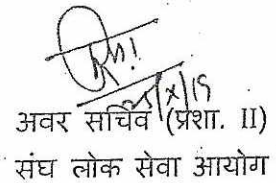 अवर सचिव (प्रशा. II)
संघ लोक सेवा आयोग